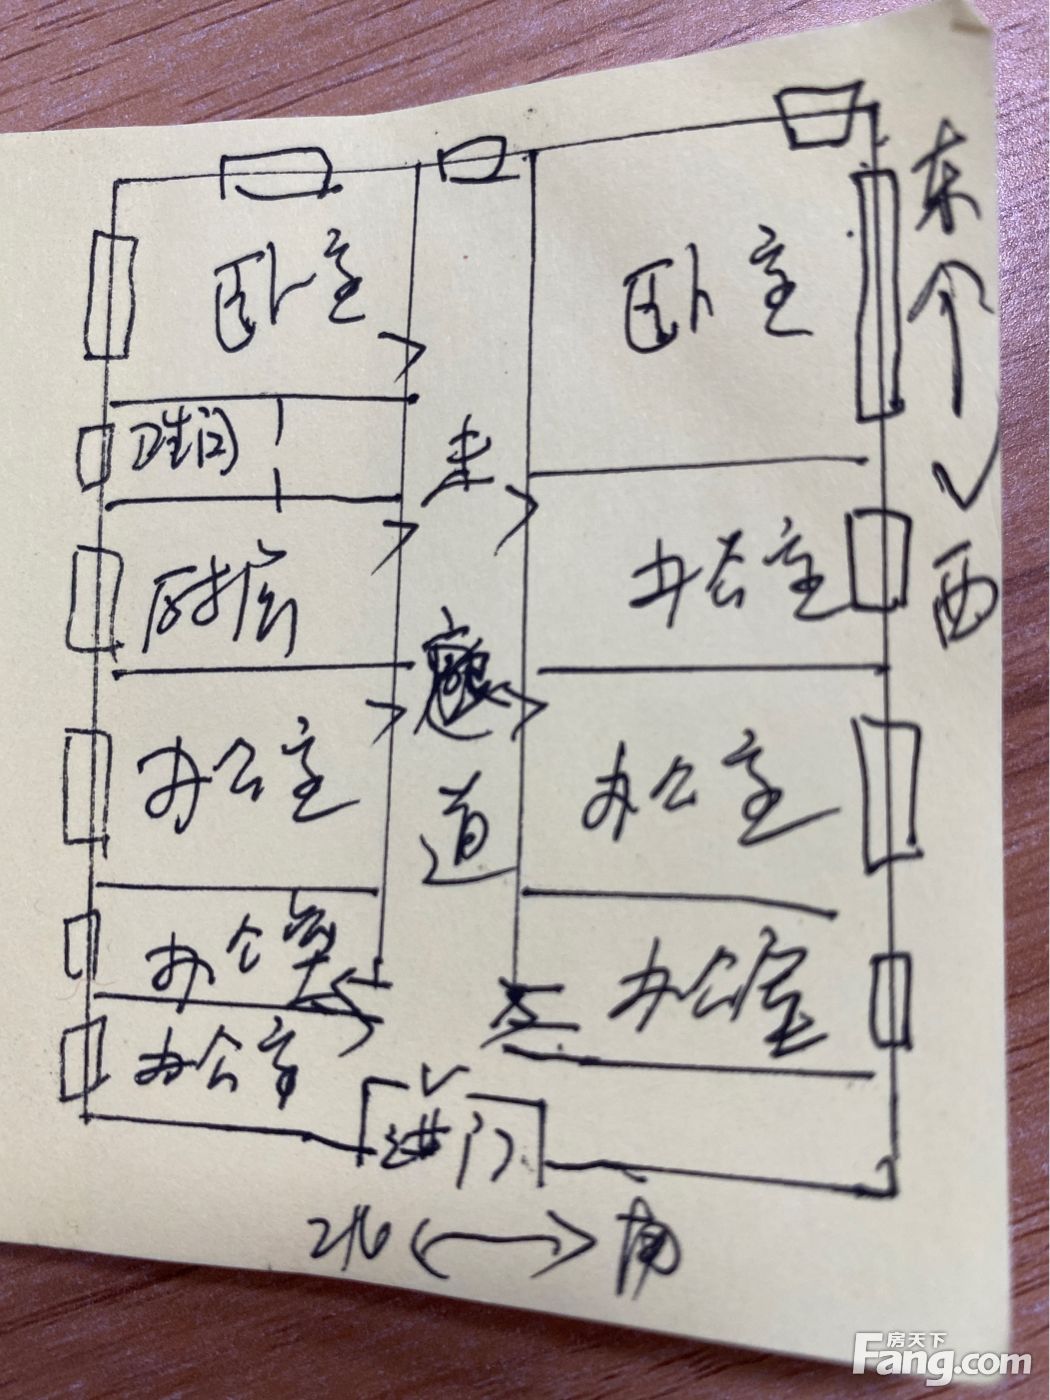 卧室
卧室
卫生间
走
厨房
办公室
办公室
办公室
道
办公室
办公室
办公室
进门
北
南
东
西
房天下
Fang.com